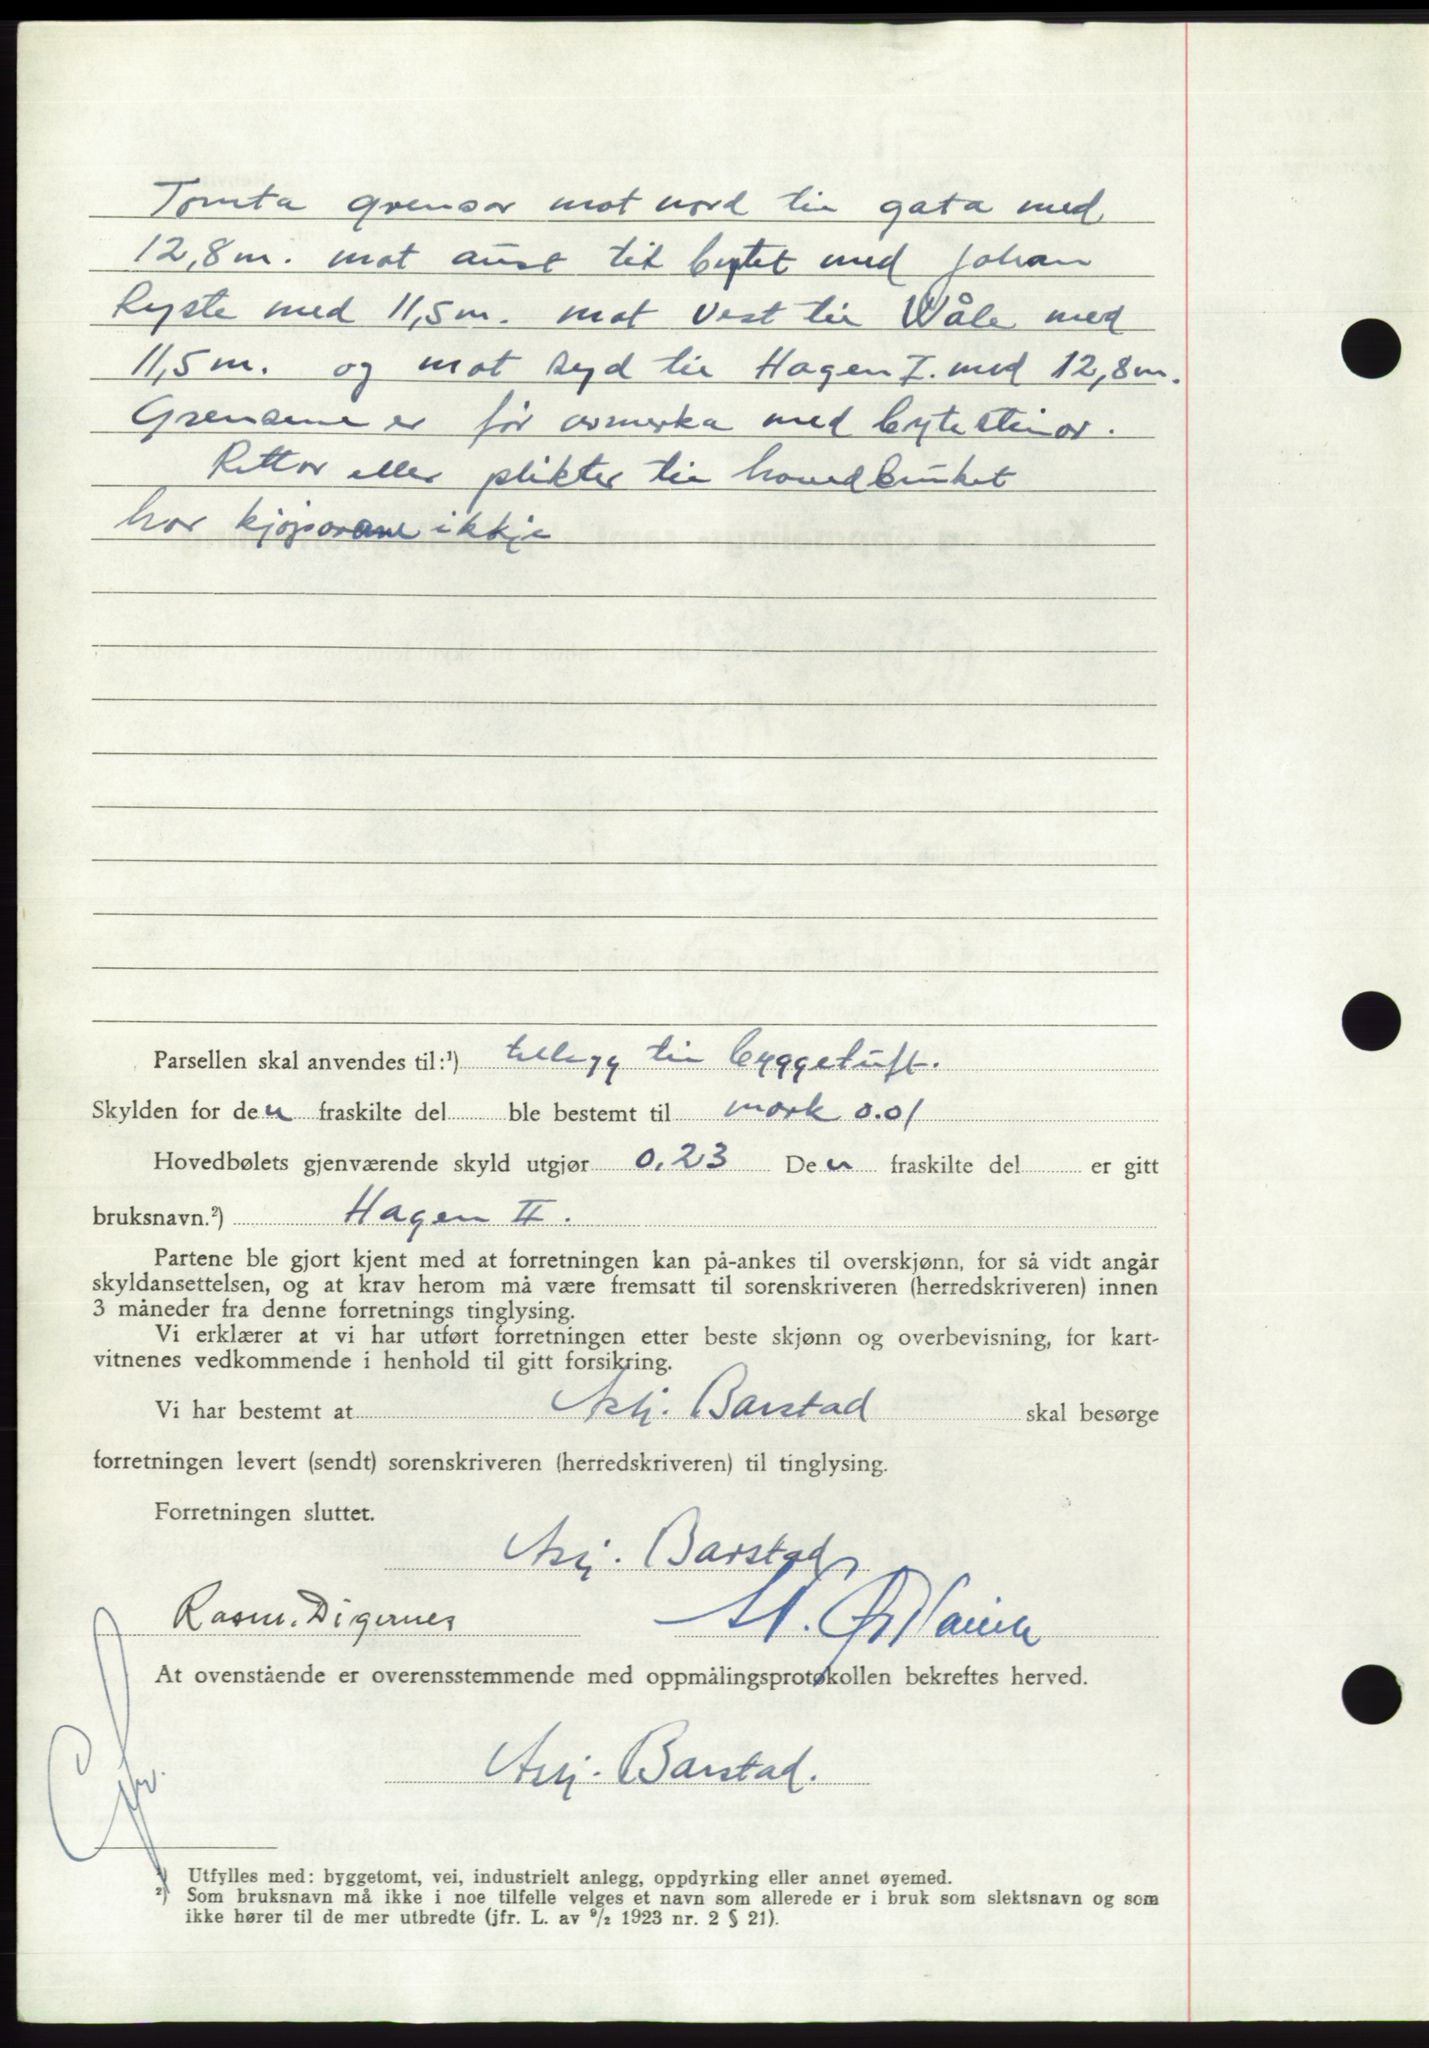 Tomta grensar mot nord til gata med
12,8 m. mot aust til bytet med Johan
Ryste med 11,5 m. mot vest til Wåle med
11,5 m. og mot syd til Hagen I. med 12,8 m.
Grensene er før avmerka med bytesteinar.
Rettar eller plikter til hovedbruket
har kjøparane ikkje
Parsellen skal anvendes til:¹) tillegg til byggetuft.
Skylden for den fraskilte del ble bestemt til mark 0.01
Hovedbølets gjenværende skyld utgjør 0.23 Den fraskilte del er gitt
bruksnavn.²) Hagen II.
Partene ble gjort kjent med at forretningen kan på-ankes til overskjønn, for så vidt angår
skyldansettelsen, og at krav herom må være fremsatt til sorenskriveren (herredskriveren) innen
3 måneder fra denne forretnings tinglysing.
Vi erklærer at vi har utført forretningen etter beste skjønn og overbevisning, for kart-
vitnenes vedkommende i henhold til gitt forsikring.
Vi har bestemt at Asbj. Barstad skal besørge
forretningen levert (sendt) sorenskriveren (herredskriveren) til tinglysing.
Forretningen sluttet.
Asbj. Barstad
Rasm. Digernes
At ovenstående er overensstemmende med oppmålingsprotokollen bekreftes herved.
Asbj. Barstad.
¹) Utfylles med: byggetomt, vei, industrielt anlegg, oppdyrking eller annet øyemed.
²) Som bruksnavn må ikke i noe tilfelle velges et navn som allerede er i bruk som slektsnavn og som
ikke hører til de mer utbredte (jfr. L. av ⁹/₂ 1923 nr. 2 § 21).